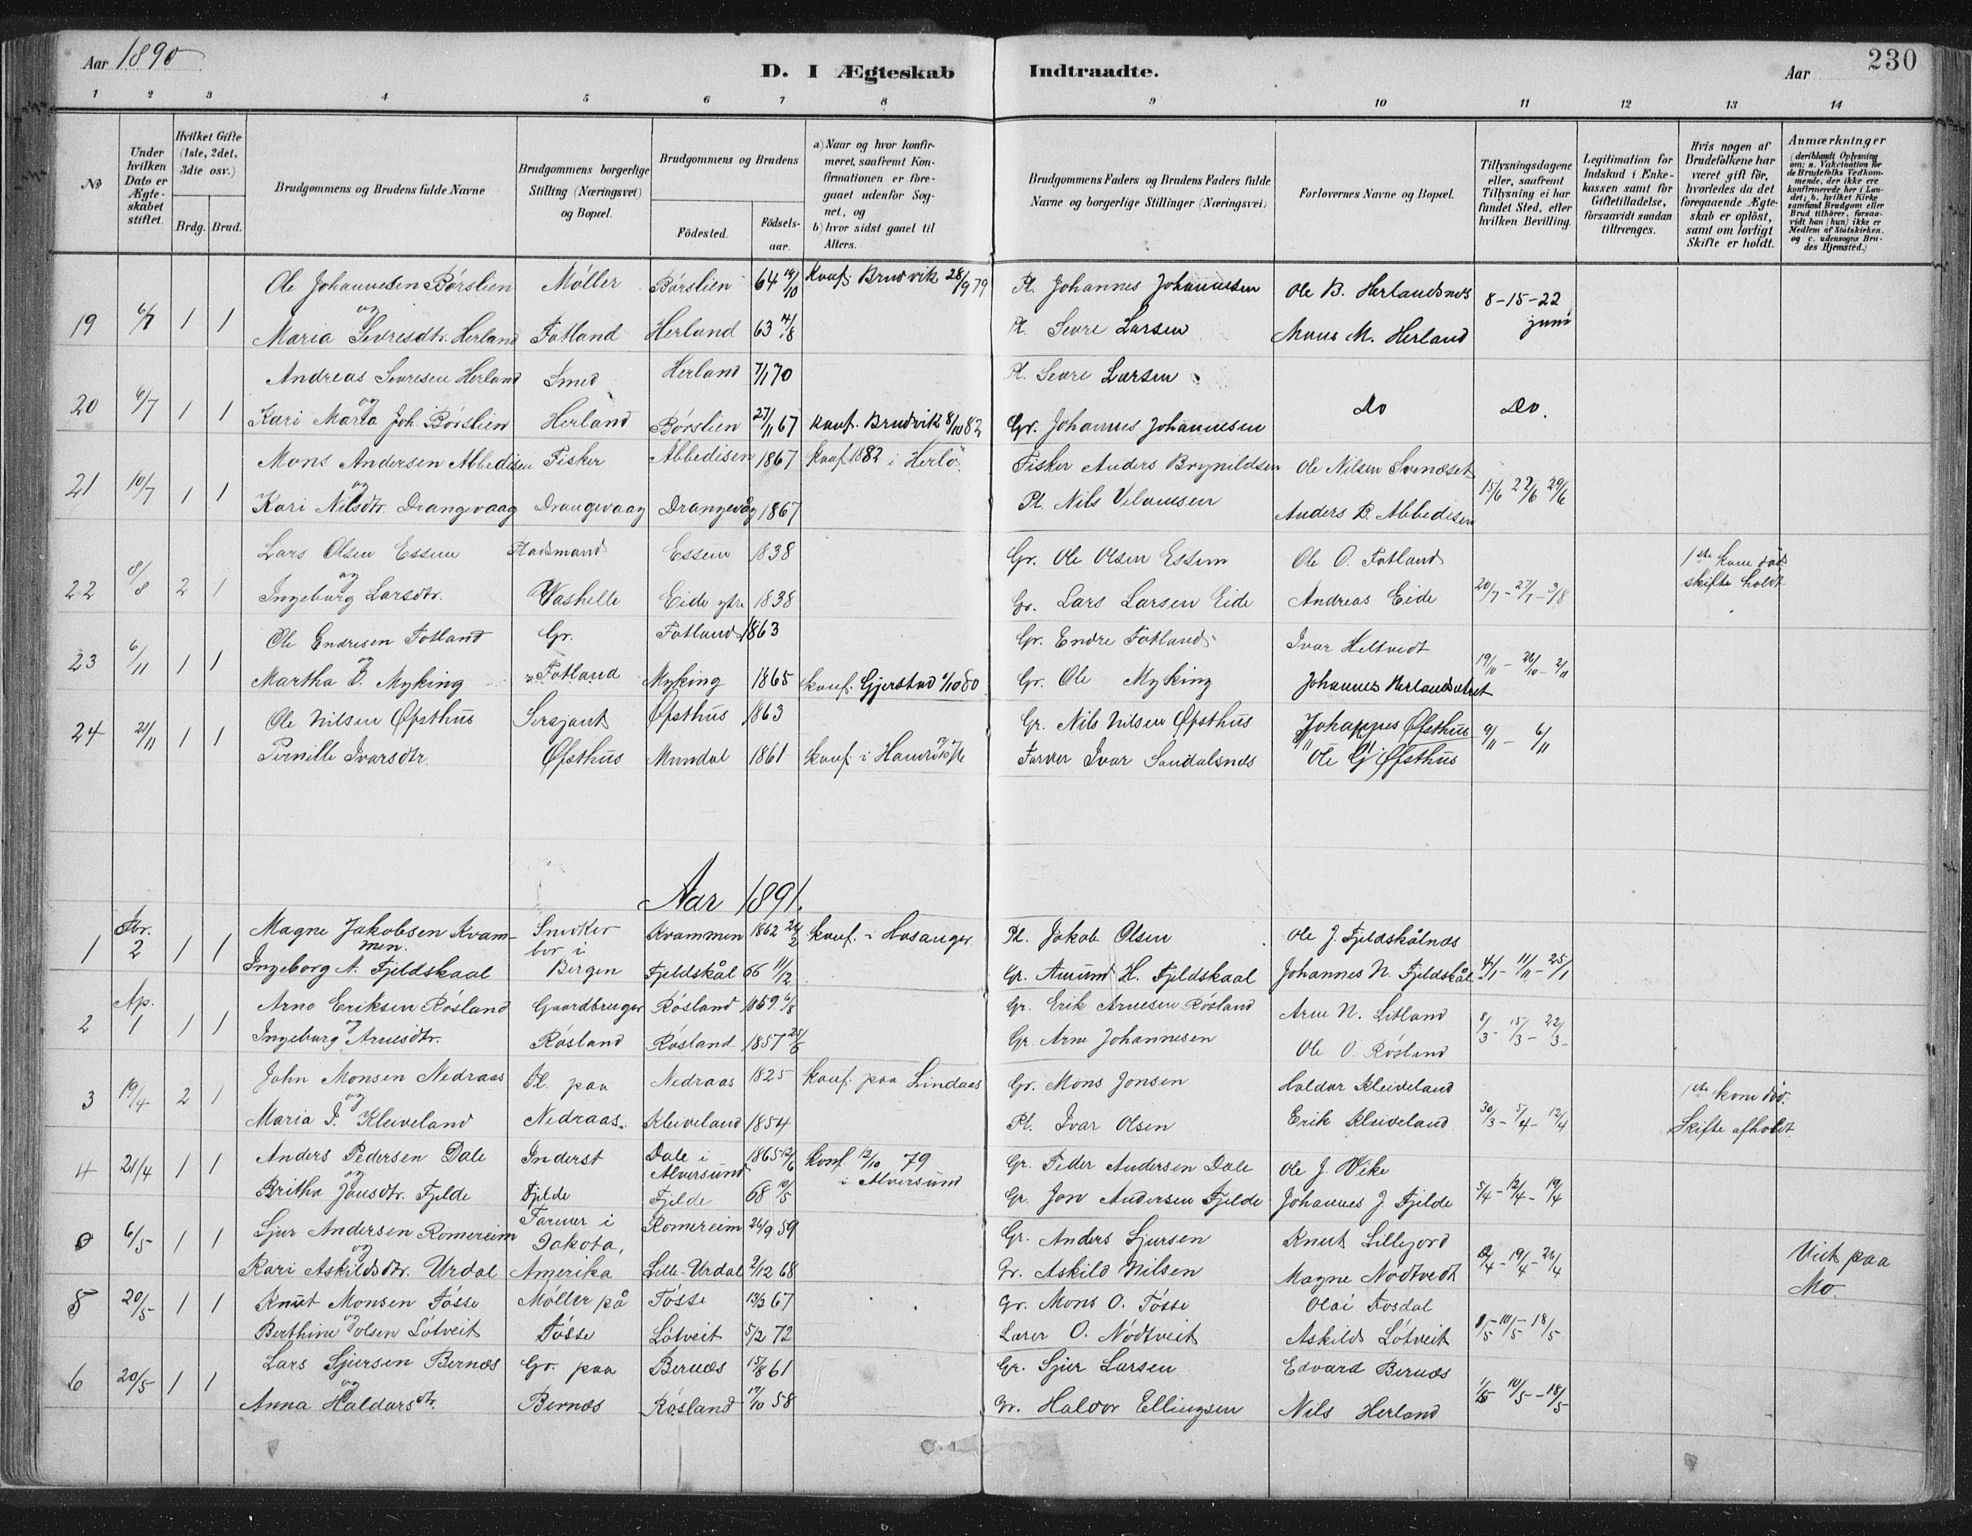 Aar 1890 D. I Ægteskab Indtraadte. Aar 230
1 2 3 4 5 6 7 8 9 10 11 12 13 14
№
Under hvilken Dato er Ægteskabet stiftet.
Hvilket Gifte (1ste, 2det, 3die osv.)
Brdg. Brud.
Brudgommens og Brudens fulde Navne
Brudgommens borgerlige Stilling (Næringsvei) og Bopæl.
Brudgommens og Brudens
Fødested. Fødselsaar.
a) Naar og hvor konfirmeret, saafremt Konfirmationen er foregaaet udenfor Sognet, og
b) hvor sidst gaaet til Alters.
Brudgommens Faders og Brudens Faders fulde Navne og borgerlige Stillinger (Næringsvei)
Forlovernes Navne og Bopæl.
Tillysningsdagene eller, saafremt Tillysning ei har fundet Sted, efter hvilken Bevilling.
Legitimation for Indskud i Enkekassen samt for Giftetilladelse, forsaavidt saadan tiltrænges.
Hvis nogen af Brudefolkene har været gift før, hvorledes da det foregaaende Ægteskab er opløst, samt om lovligt Skifte er holdt.
Anmærkninger
(deriblandt Oplysning om: a. Vakcination for de Brudefolks Vedkommende, der ikke ere konfirmerede her i Landet; b. hvilket Kirkesamfund Brudgom eller Brud tilhører, forsaavidt han (hun) ikke er Medlem af Statskirken, og c. udensogns Brudes Hjemsted.)
Ole Johannesen Børslien Møller Børslien 64 19/10 konf. Brudvik 28/9 79 Pl. Johannes Johannesen Ole B. Herlandsnes 8-15-22
19 6/7 1 1 og juni
Maria Sevresdtr. Herland Fotland Herland 63 4/8 Pl. Sevre Larsen Mons M. Herland
Andreas Sevresen Herland Smed Herland 7/1 70 Pl. Sevre Larsen
20 6/7 1 1 og Do Do.
Kari Marta Joh. Børslien Herland Børslien 27/11 67 konf. Brudvik 8/10 82 Gr. Johannes Johannesen
Mons Andersen Abbedisen Fisker Abbedisen 1867 konf 1882 i Herlø Fisker Anders Brynildsen Ole Nilsen Svenæset
21 10/7 1 1 og 15/6 22/6 29/6
Kari Nilsdtr. Drangevaag Drangevaag Drangevåg 1867 Pl. Nils Anders B. Abbedisen
Lars Olsen Essem Pladsmand Essem 1838 Gr. Ole Olsen Essem Ole O. Fotland 1ste kone død
22 8/8 2 1 og 20/7 - 27/7 - 3/8 skifte holdt
Ingeborg Larsdtr. Vashelle Eide ytre 1838 Gr. Lars Larsen Eide Andreas Eide
Ole Endresen Fotland Gr. Fotland 1863 Gr. Endre Fotland Ivar Heltvedt
23 6/11 1 1 og 19/10 - 26/10 - 2/11
Martha Myking Fotland Myking 1865 konf. Gjerstad 80 Gr. Ole Myking Johannes
Ole Nilsen Øfsthus Sersjant Øfsthus 1863 Gr. Nils Nilsen Øfsthus Johannes Øfsthus
24 21/11 1 1 9/11 - 6/11
Pernille Ivarsdtr. Øfsthus Mundal 1861 konf. i Hamre Farver Ivar Sandalsnes Ole G. Øfsthus
Aar 1891.
Magne Jakobsen Kvam- Snedker Kvammen 1862 24/2 konf. i Hosanger Pl. Jakob Olsen Ole J. Fjeldskålnes
1 Fbr. 2 1 1 men. bor i
Ingeborg A. Fjeldskaal Bergen Fjeldskål 66 11/12 Gr. Amund H. Fjeldskaal Johannes N. Fjeldskål 4/1 - 11/1 - 25/1
Arne Eriksen Røsland Gaardbruger Røsland 1859 6/8 Gr. Erik Arnesen Røsland Arne N. Litland
2 Ap. 1 1 1 og 8/3 - 15/3 - 22/3
Ingeborg Arnesdtr. Røsland Røsland 1857 25/6 Gr. Arne Johannesen Ole O. Røsland
John Monsen Nedraas Pl. paa Nedraas 1825 konf. paa Lindaas Gr. Mons Jonsen Haldor Kleiveland 1ste kone død.
3 19/4 2 1 og
Maria I. Kleiveland Nedraas Kleiveland 1854 Pl. Ivar Olsen Erik Kleiveland 30/3 - 5/4 - 12/4 Skifte afholdt
Anders Pedersen Dale Inderst Dale i Alversund 1865 12/6 konf 12/10 79 i Alversund Gr. Peder Andersen Dale Ole J. Vike
4 21/4 1 1 og
Britha Jonsdtr. Fjelde Fjelde Fjelde 68 10/5 Gr. Jon Andersen Fjelde Johannes J. Fjelde 5/4 - 12/4 - 19/4
Sjur Andersen Romereim Farmer i Romereim 26/9 59 Gr. Anders Sjursen Knut Lillejord
6/5 1 1 og Dakota, Viet paa
Kari Askildsdtr. Urdal Amerika Lille-Urdal 2/12 68 Gr. Askild Nilsen Magne Nødtvedt 12/4 - 19/4 - 26/4 Mo.
Knut Monsen Tøsse Møller på Tøsse 13/3 67 Gr. Mons O. Tøsse Olai Fosdal
5 20/5 1 1 og
Berthine Olsen Løtveit Tøsse Løtveit 5/2 72 Lærer O. Nødtveit Askild Løtveit 8/5 - 10/5 - 18/5
Lars Sjursen Bernæs Gr. paa Bernæs 15/8 61 Gr. Sjur Larsen Edvard Bernæs
6 20/5 1 1 og
Anna Haldorsdtr. Bernæs Røsland 17/10 58 Gr. Haldor Ellingsen Nils Herland 10/5 - 18/5